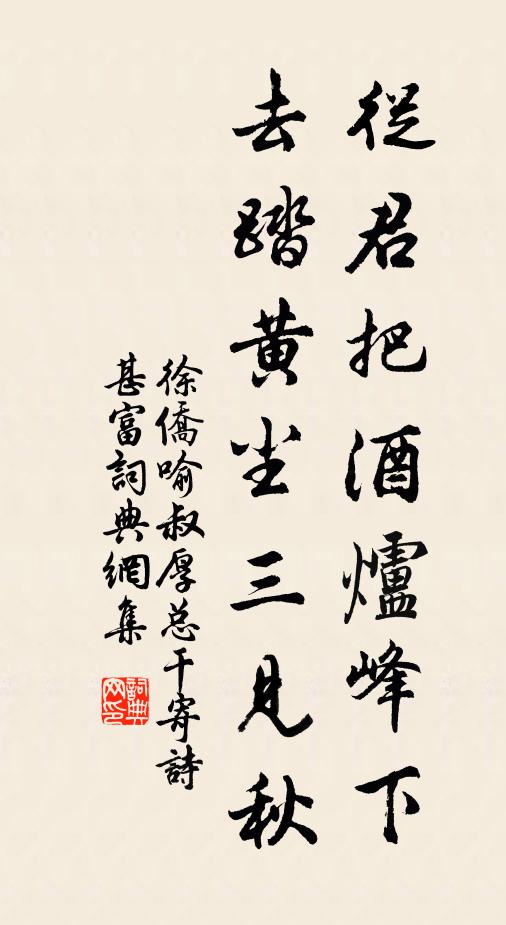 從君把酒爐峰下
去踏黃尘三見秋
徐僑喻叔厚总干寄詩
甚富詞典網集
詞典网印